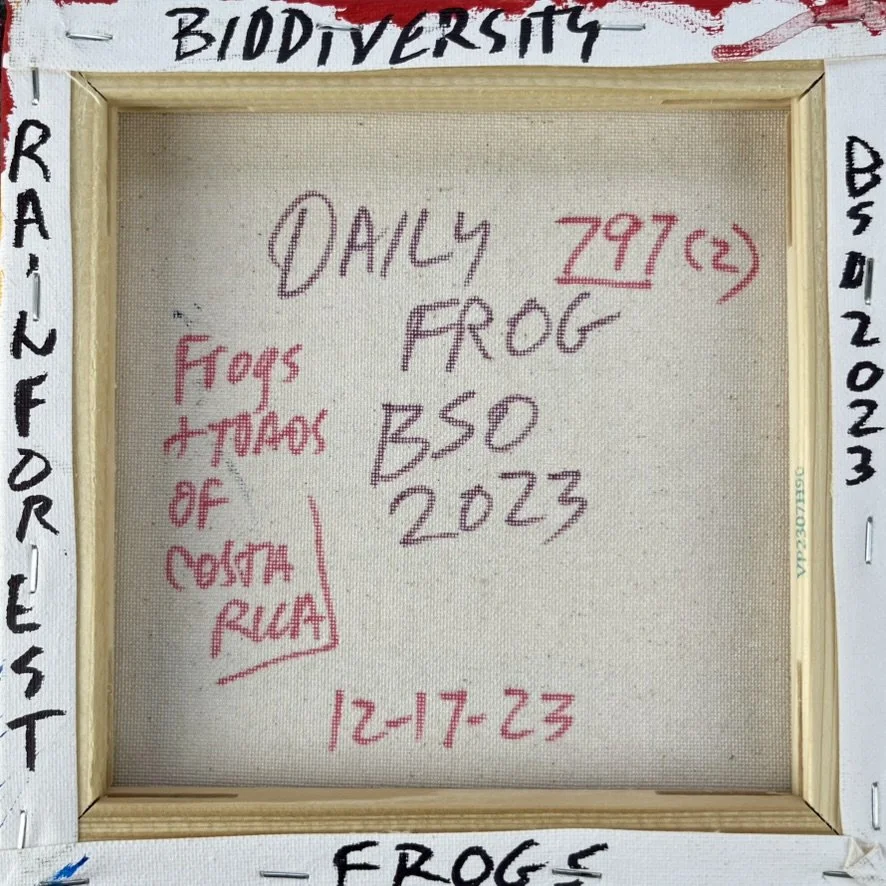 BIODIVERSITY
RAINFOREST
DAILY 797 (2)
FROG
BSO
2023
Frogs
+ TOADS
OF
COSTA
RICA
12-17-23
VP23071190
BSO 2023
FROGS